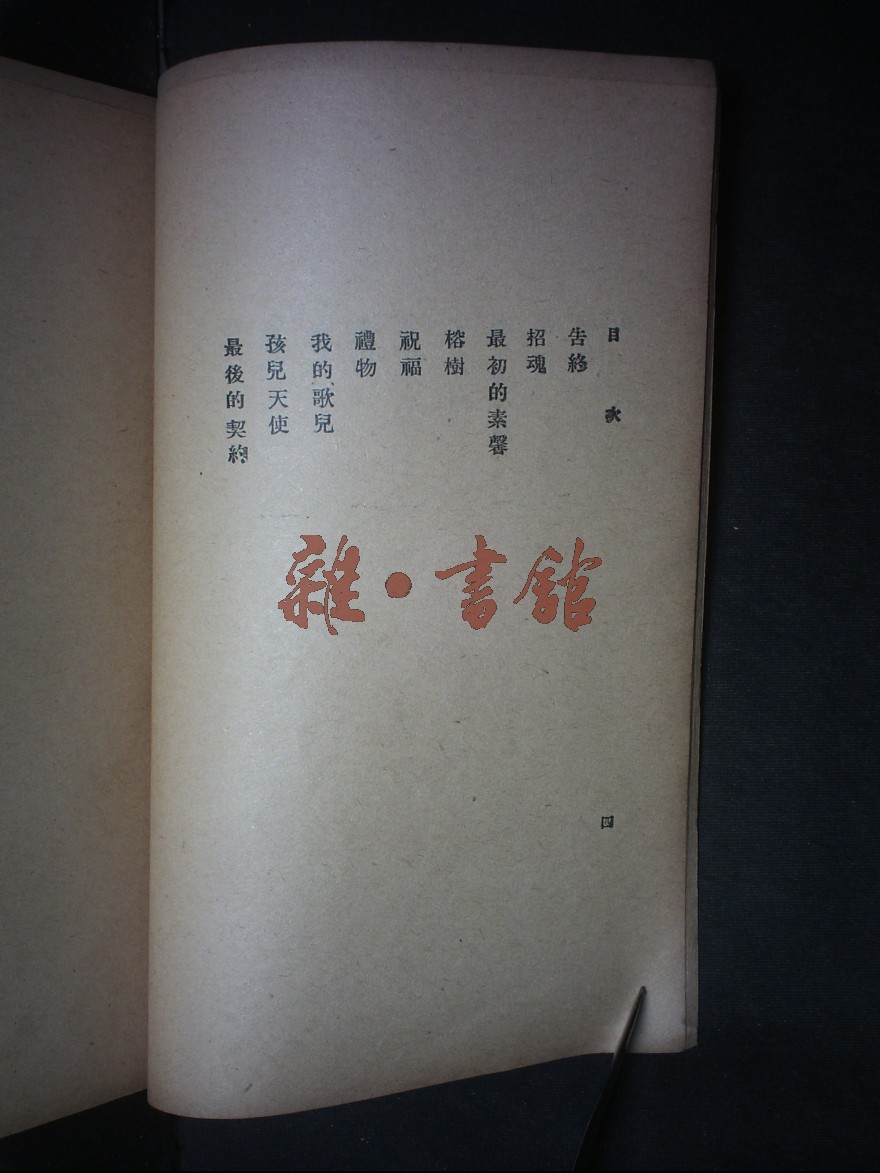 目次
告終
招魂
最初的素馨
榕樹
祝福
禮物
我的歌兒
孩兒天使
最後的契約
四
雜・書館